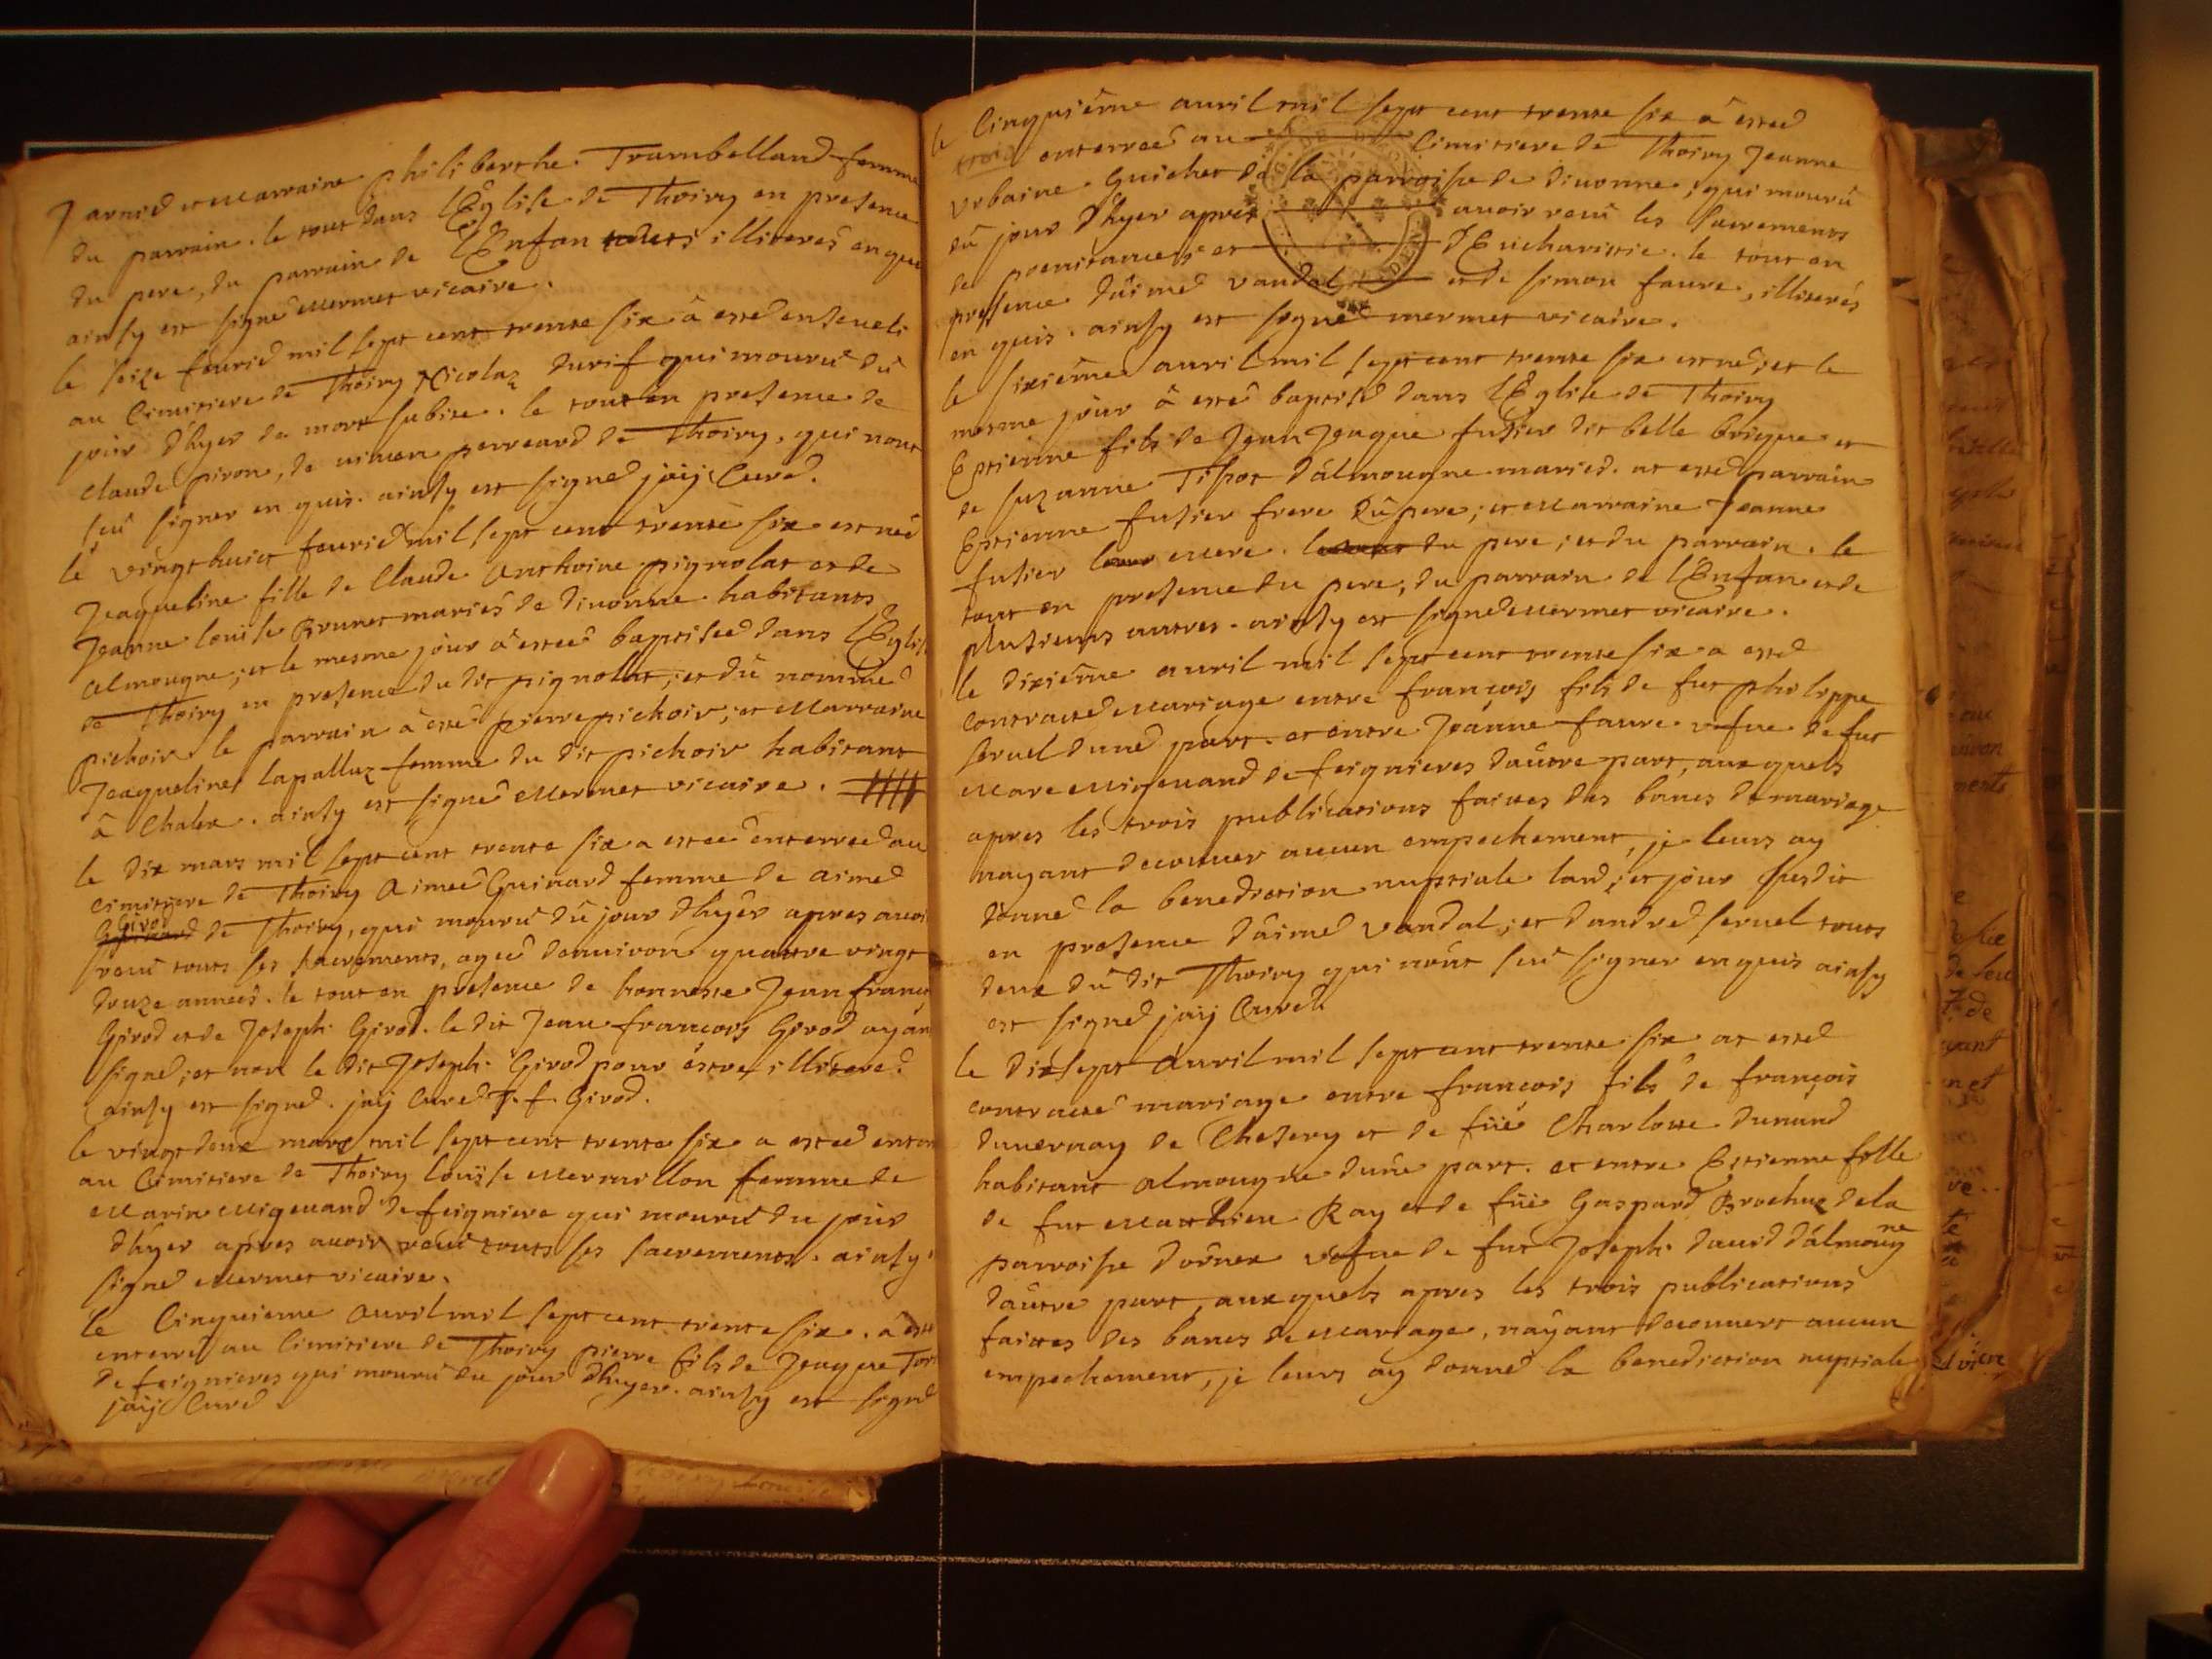 Jarnied et Marraine philiberthe Trambelland femme
du parrain. le tout dans lEglise de Thoiry en presence
du pere, du parrain de lEnfan touts illiterés enquis
ainsy est signé Mermet vicaire.
le seize fevried mil sept cent trente six â esté enseveli
au Cimitiere de Thoiry Nicolaz Durif qui mourut dû
jour d'hyer de mort subite. le tout en presence de
Claude piron, de perreard de Thoiry, qui n'ont
seû signer en quis. ainsy est signed jaij Cured.
le vingt huict fevried mil sept cent trente six est née
Jeaqueline fille de Claude Anthoine pignolat et de
Jeanne louise Brunet mariés de divonne habitants
Almougne; et le mesme jour â estéé baptisée dans lEglise
de Thoiry en presence du dit pignolat; et dû nommé
pichoir le parrain â esté pierre pichoir; et Marraine
Jeaqueline lapalluz femme du dit pichoir habitant
â Chalex. ainsy est signé Mermet vicaire.
le dix mars mil sept cent trente six a estéé enterrée au
cimitiere de Thoiry Aimeé Guinard femme de aimed
Girod
de Thoiry, qui mourut dû jour d'hyer apres avoir
reçeu touts ses sacrements, ageé denviron quattre vingt
douze anneés. le tout en presence de honneste Jean francois
Girod et de Joseph Girod. le dit Jean francois Girod ayan
signed; et non le dit Joseph Girod pour estre illitere.
ainsy est signed. jaij Cured J. f. Girod.
le vingt deux mars mil sept cent trente six a estéé enter
au Cimitiere de Thoiry louïse Mermillon femme de
Marin Migevand de feigniere qui mourut du jour
d'hyer apres avoir reçeu touts ses sacrements. ainsy
signed Mermet vicaire.
le Cinquieme Avril mil sept cent trente six. â esté
enterré au Cimitiere de Thoiry pierre fils de Jeaque
de feignieres qui mourut du jour d'hyer. ainsy est signed
jaij Cured
le Cinquième avril mil sept cent trente six â estéé
enterreé au Cimitiere de Thoiry Jeanne
Urbaine Guichet de la parroisse de divonne, qui mourû
dû jour d'hyer apres avoir reçeu les sacrements
de poenitances et dEucharistie. le tout en
presence d'aimed vandal et de simon faure, illiterés
en quis. ainsy est signed mermet vicaire.
le sixième avril mil sept cent trente six est ned; et le
mesme jour â esté baptised dans lEglise de Thoiry
Estienne fils de Jean Jeaque fusier dit belle brigue et
de suzanne Tissot d'almougne maried. at esté parrain
Estienne fusier frere dû pere; et Marraine Jeanne
fusier mere du pere; et du parrain. le
tout en presence du pere, du parrain de lEnfan et de
plusieurs autres. ainsy est signed Mermet vicaire.
le dixième avril mil sept cent trente six a esté
contracted Mariage entre françois fils de fut philippe
seruel d'uned part. et entre Jeanne faure vefve de fut
Marc Migevand de feignieres d'autre part, aux quels
apres les trois publications faittes des bancs de mariage
nayant decouver aucun empechement, je leurs ay
donné la benediction nuptiale lard; et jour susdit
en presence d'aimed vandal; et d'andred seruel touts
deux dû dit Thoiry qui n'ont seû signer enquis ainsy
est signed jaij Cured.
le dixsept Avril mil sept cent trente six at esté
contracté mariage entre françois fils de françois
duvernay de Chesery et de füe Charlotte dunand
habitant almougne d'une part. et entre Estienne fille
de fut Matthieu Ray et de füe Gaspard Brochuz de la
parroisse dornex vefve de fut Joseph david d'almougne
d'autre part, aux quels apres les trois publications
faittes des bancs de Mariage, nayant decouvert aucun
empechement, je leurs ay donned la benediction nuptiale